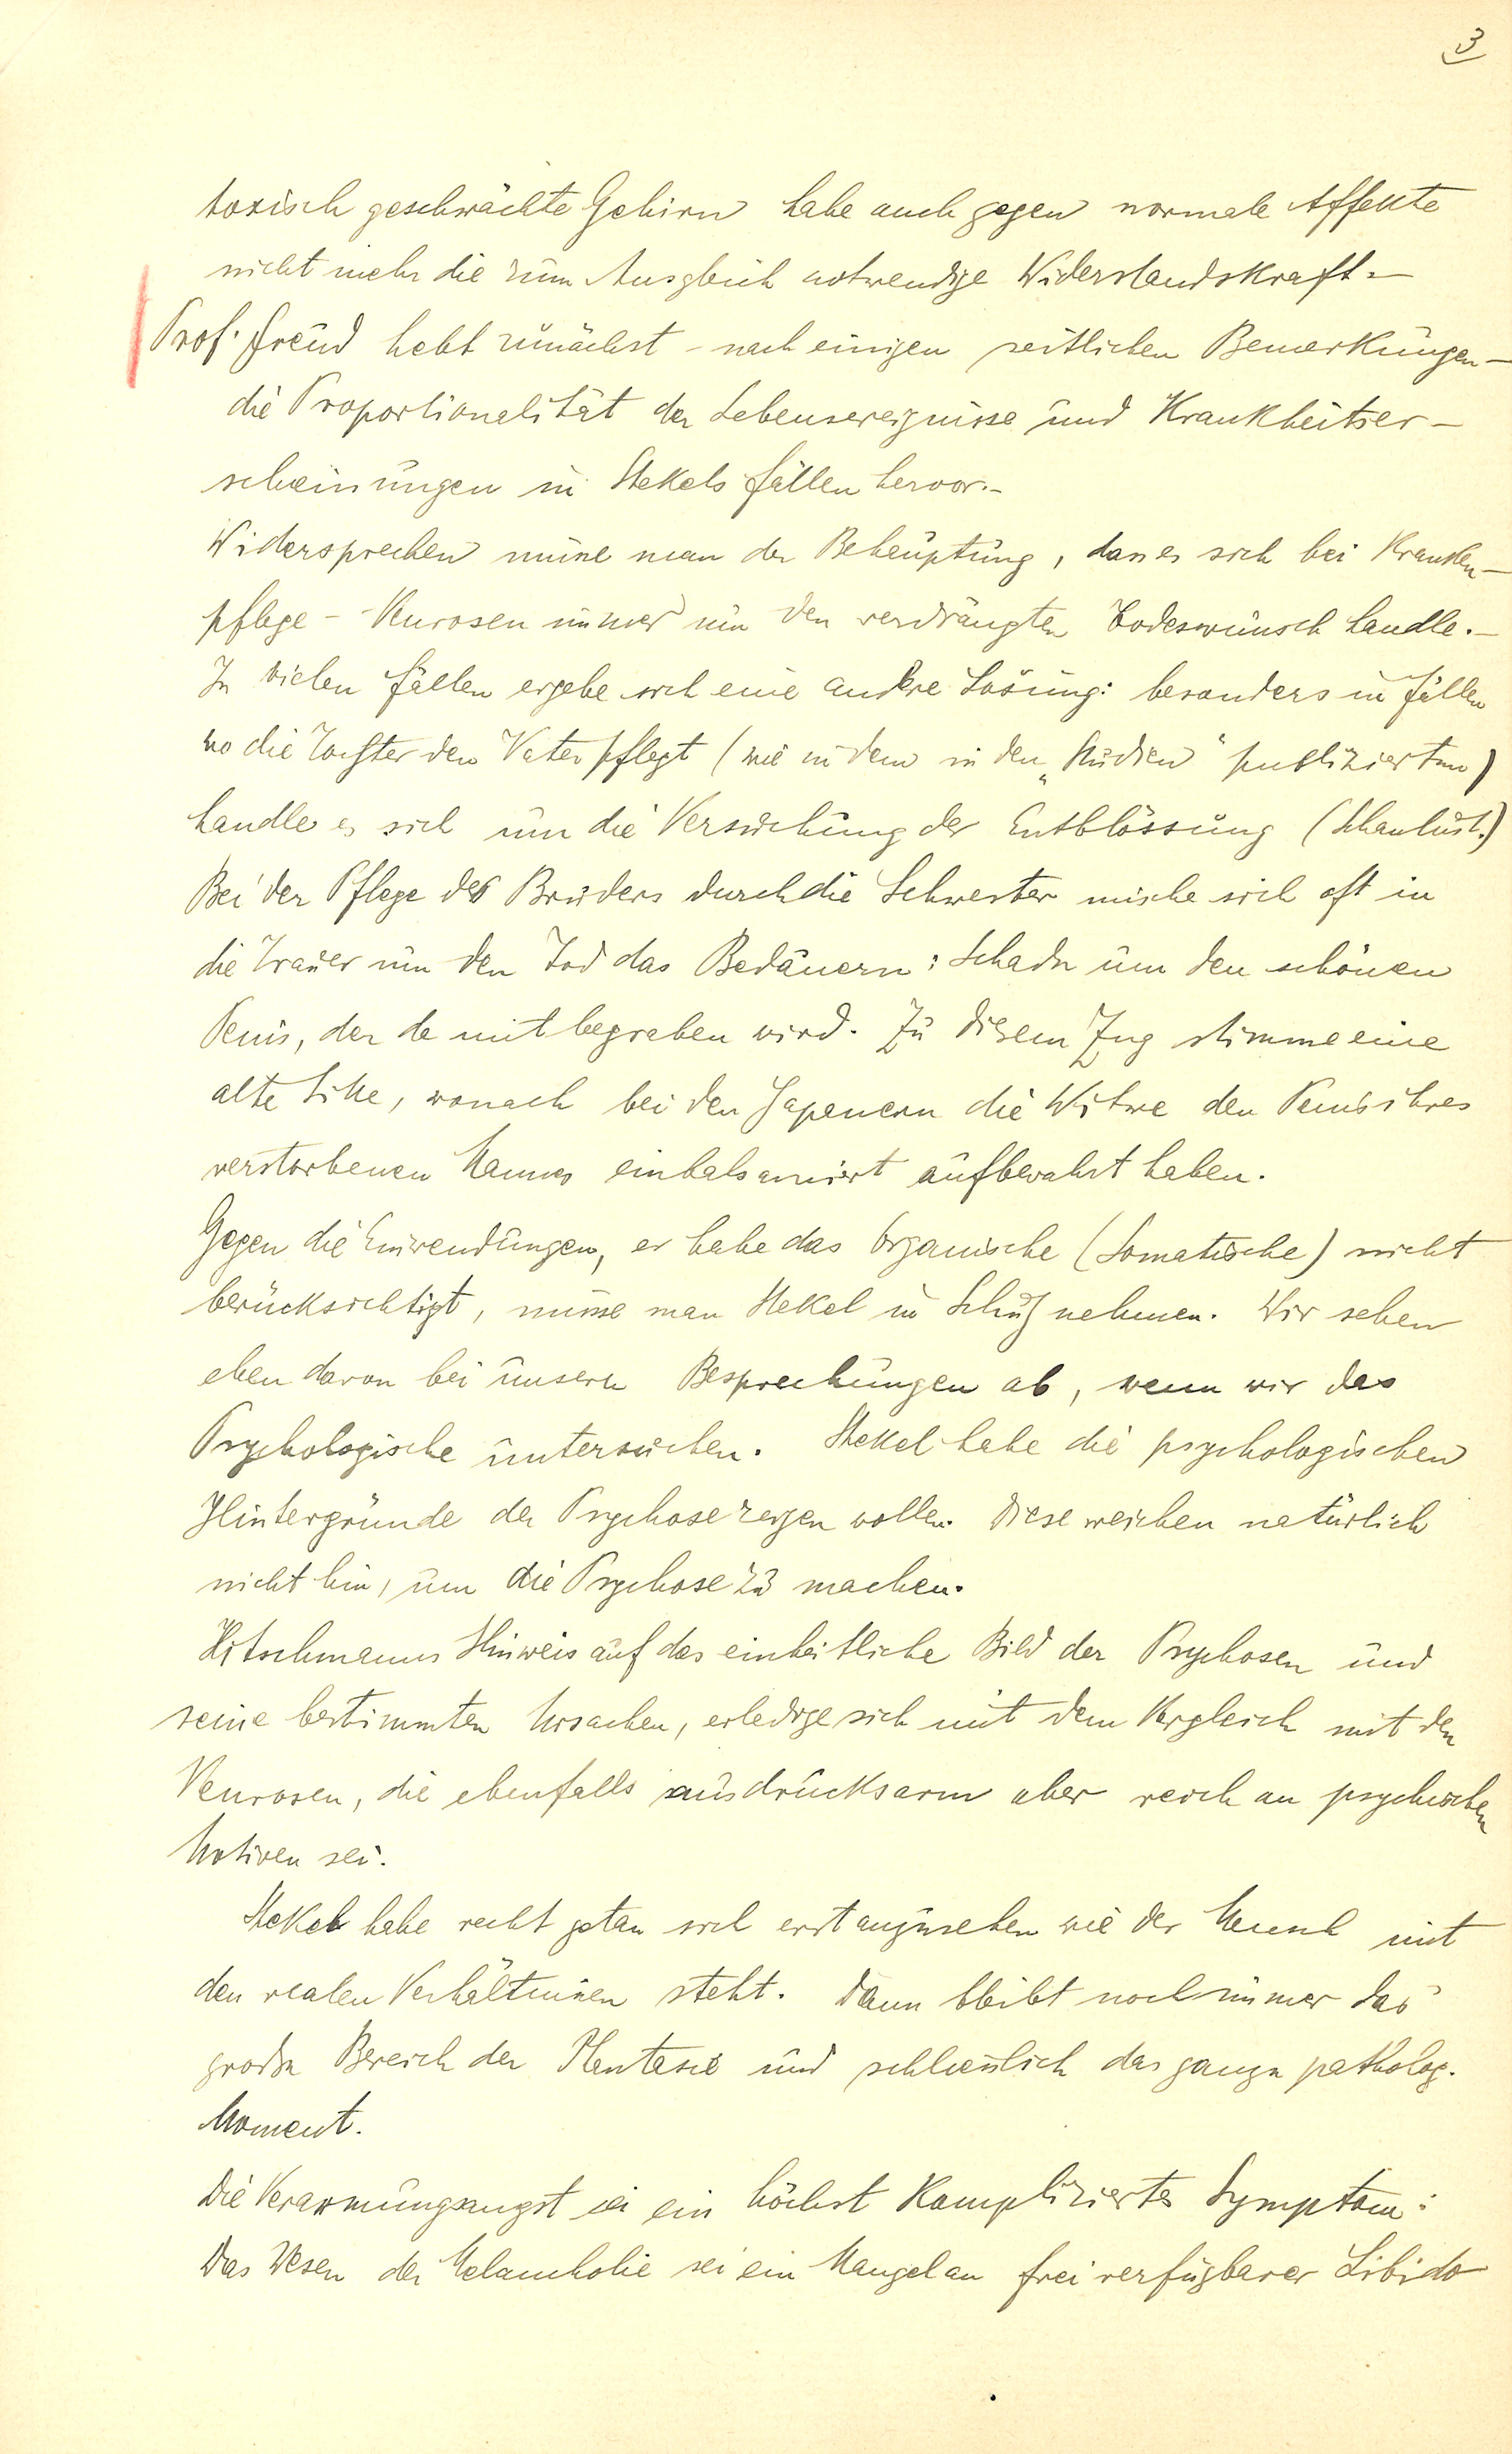 3
toxisch geschwächte Gehirn habe auch gegen normale Affekte
nicht mehr die zum Ausgleich notwendige Widerstandskraft.–
Prof. Freud hebt zunächst – nach einigen seitlichen Bemerkungen –
die Proportionalität der Lebensereignisse und Krankheitser–
scheinungen in Stekels Fällen hervor.–
Widersprechen müsse man der Behauptung, dass es sich bei Kranken–
pflege – Neurosen immer um den verdrängten Todeswunsch handle.–
In vielen Fällen ergebe sich eine andere Lösung: besonders in Fällen
wo die Tochter den Vater pflegt (wie in dem in den „Studien" publizierten)
handle es sich um die Versuchung der Entblössung (Schaulust.)
Bei der Pflege des Bruders durch die Schwester mische sich oft in
die Trauer um den Tod das Bedauern: Schade um den schönen
Penis, der da mit begraben wird. Zu diesem Zug stimme eine
alte Sitte, wonach bei den Japanern die Witwe den Penis ihres
verstorbenen Mannes einbalsamiert aufbewahrt haben.
Gegen die Einwendungen, er habe das Organische (Somatische) nicht
berücksichtigt, müsse man Stekel in Schutz nehmen. Wir sehen
eben davon bei unsern Besprechungen ab, wenn wir das
Psychologische untersuchen. Stekel habe die psychologischen
Hintergründe der Psychose zeigen wollen. Diese reichen natürlich
nicht hin, um die Psychose zu machen.
Hitschmanns Hinweis auf das einheitliche Bild der Psychosen und
seine bestimmten Ursachen, erledige sich mit dem Vergleich mit den
Neurosen, die ebenfalls ausdrucksarm aber reich an psychischen
Motiven sei.
Stekel habe recht getan sich erst anzusehen wie der Mensch mit
den realen Verhältnissen steht. Dann bleibt noch immer das
große Bereich der Phantasie und schliesslich das ganze patholog.
Moment.
Die Verarmungsangst sei ein höchst kompliziertes Symptom:
Das Wesen der Melancholie sei ein Mangel an frei verfügbarer Libido